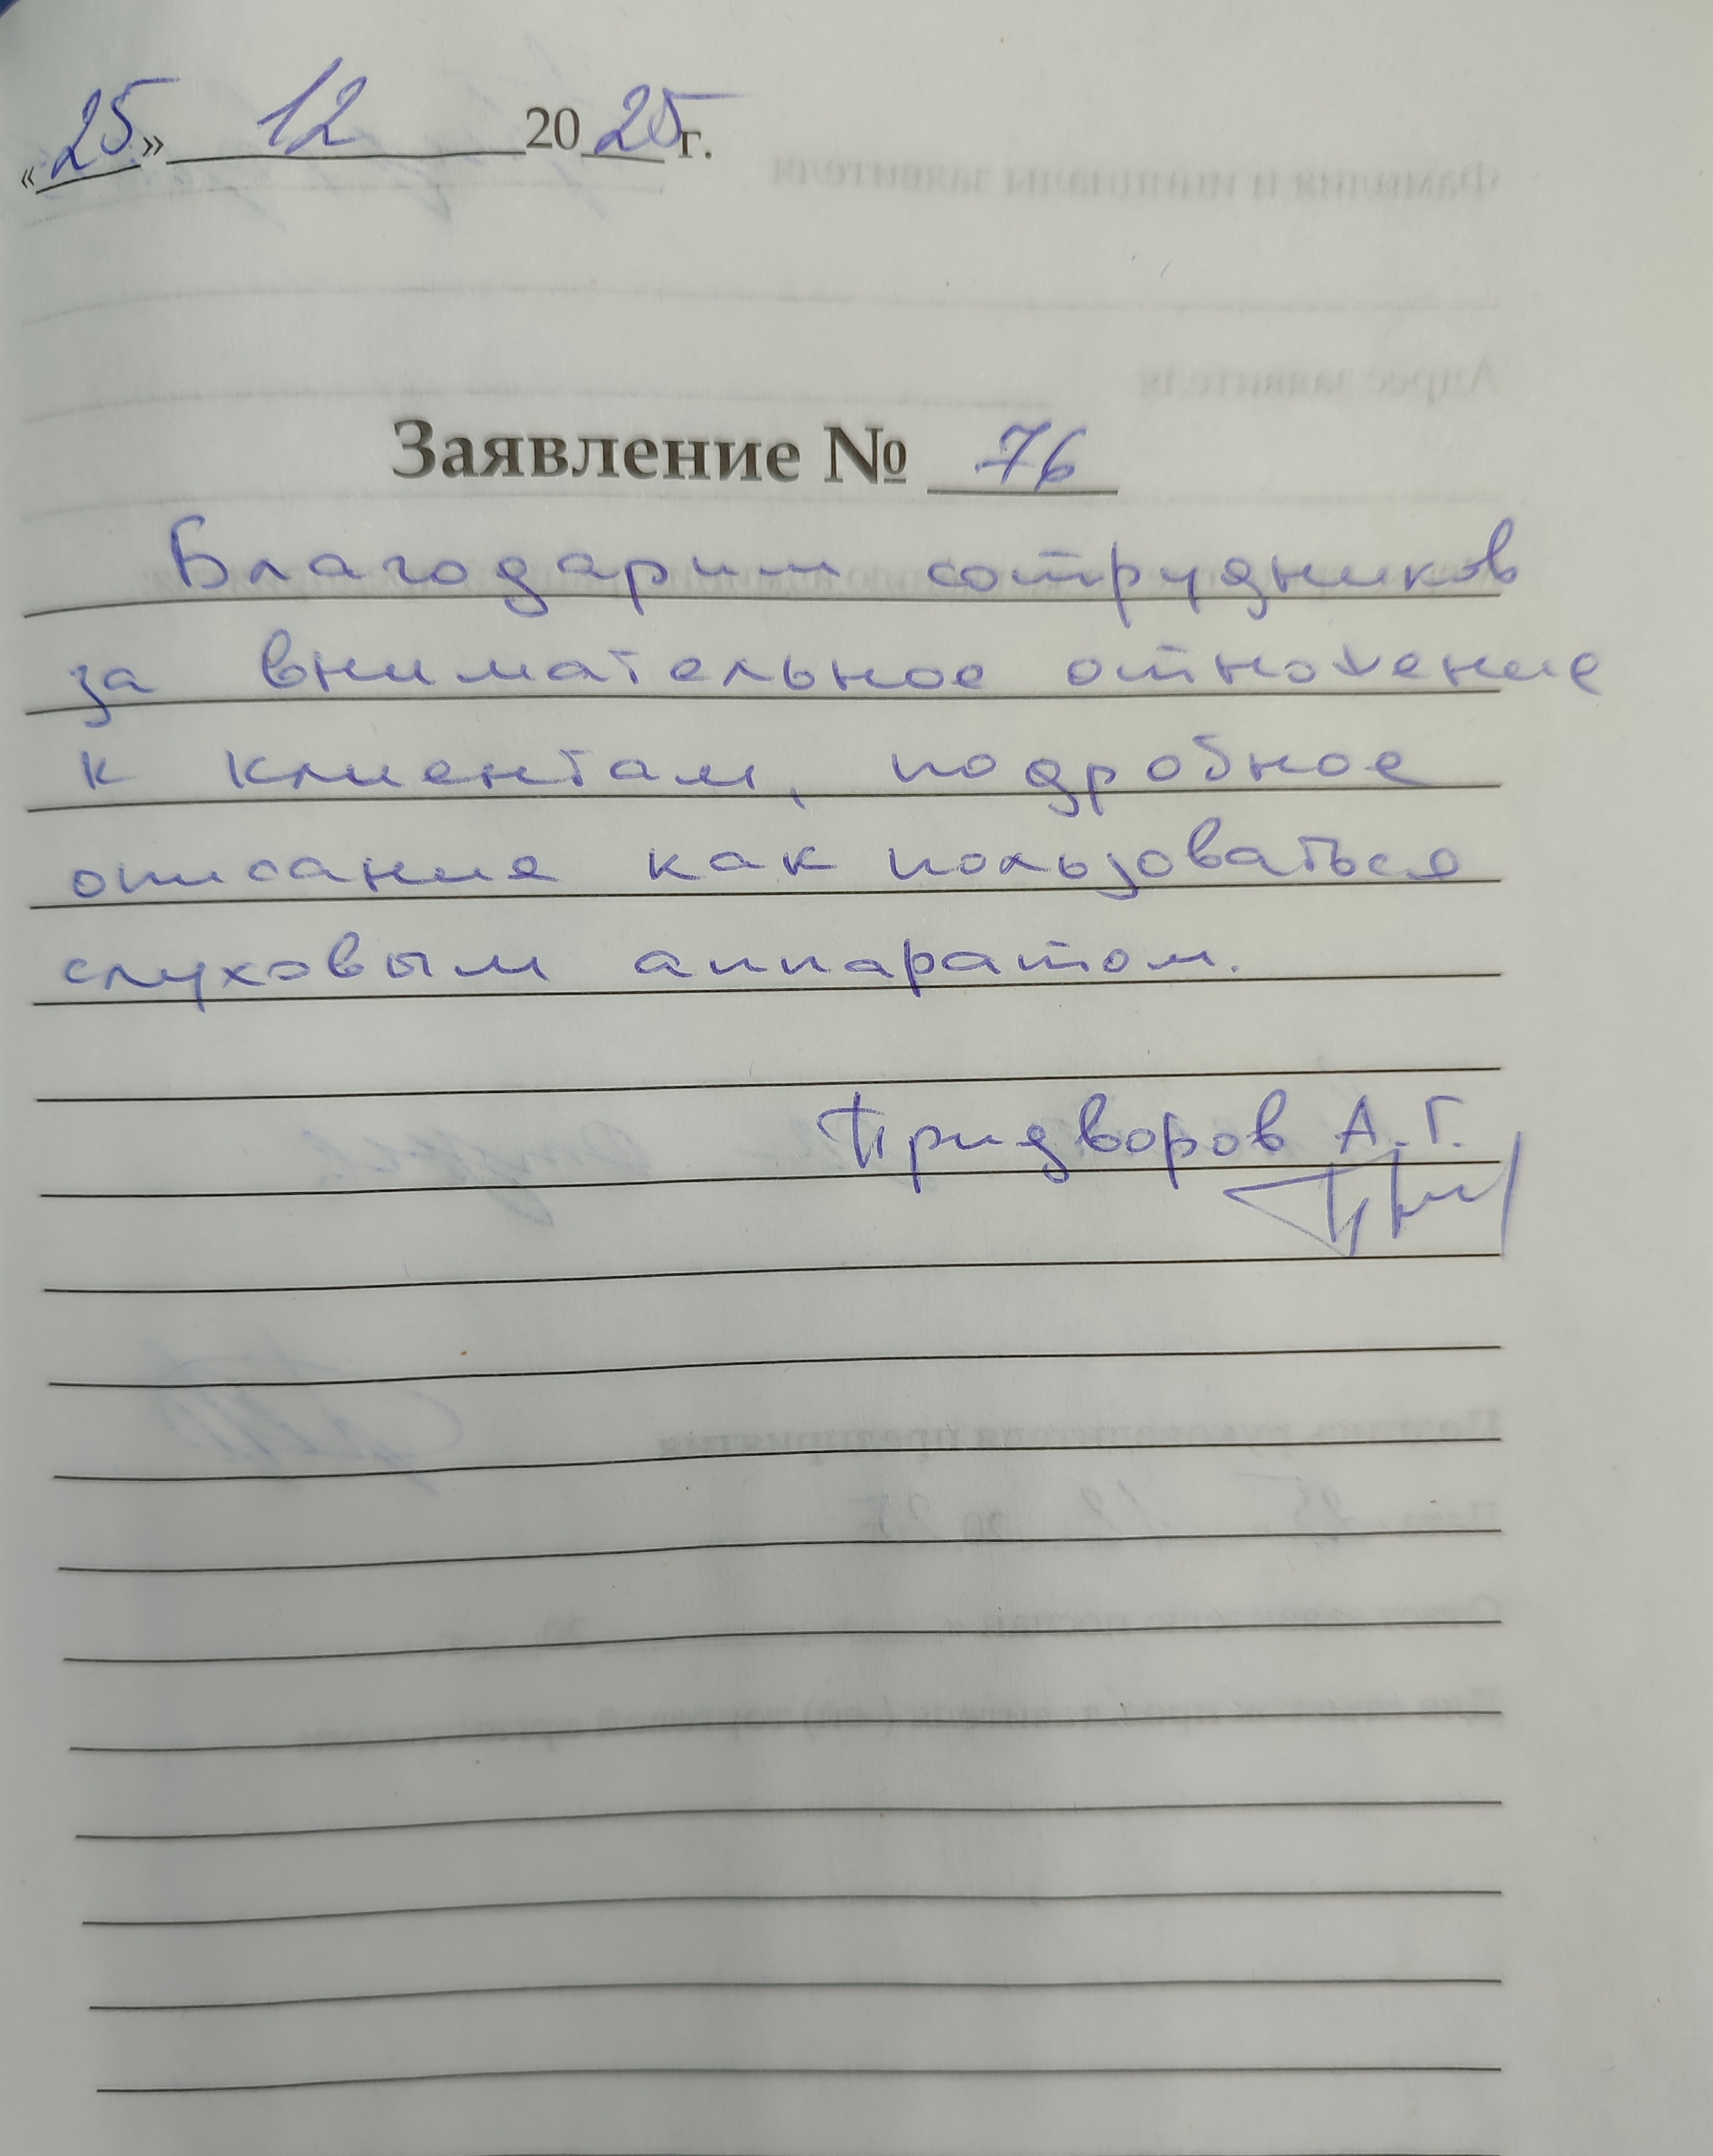 «25» 12 2025г.
Заявление № 76
Благодарим сотрудников
за внимательное отношение
к клиентам, подробное
описание как пользоваться
слуховым аппаратом.
Придворов А.Г.